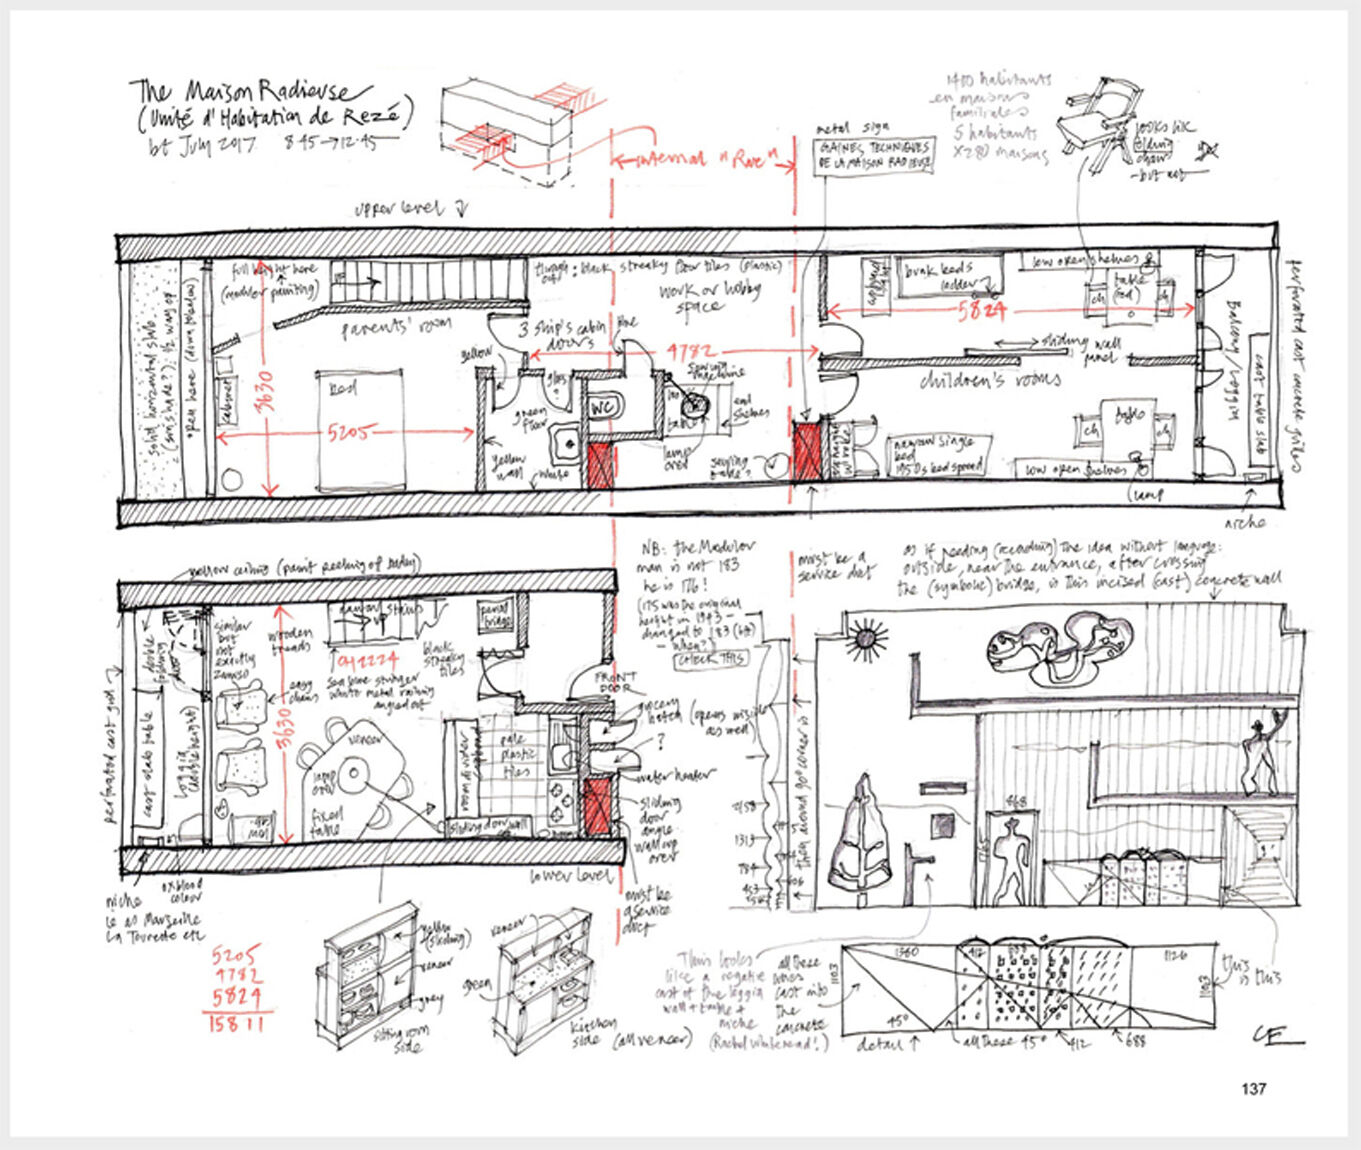 The Maison Radieuse
(Unité d'Habitation de Rezé)
July 2017 8.45→12.45
internal "Rue"
metal sign
GAINES TECHNIQUES
DE LA MAISON RADIEUSE
1400 habitants
en maisons
familiales
5 habitants
x280 maisons
looks like
folding
chair
-but not
upper level
solid horizontal slab
open here (down below)
full height here
(modulor painting)
parents' room
3630
5205
bed
cabinet
throughout: black streaky floor tiles (plastic)
work or hobby
space
3 ship's cabin
doors
4782
yellow
green
floor
yellow
wall
white
WC
sewing
machine
table
end
shelves
lamp
over
bunk beds
ladder
low open shelves
table
ch
ch
5824
sliding wall
panel
children's rooms
table
ch
ch
narrow single
bed
1950s bed spread
low open shelves
lamp
Balcony/Loggia
cast table slab
niche
perforated cast concrete grilles
yellow ceiling (paint peeling off badly)
perforated cast grid
cast slab table
double
folding
door
loggia
(double height)
similar
but
not
exactly
easy
chairs
wooden
treads
stairs
up
2224
sea blue stringer
white metal railing
angled out
black
streaky
tiles
fridge
3630
veneer
lamp
over
fixed
table
room divider
pale
plastic
tiles
sliding door wall
FRONT
DOOR
grocery
hatch (opens inside
as well)
?
water heater
sliding
door
angle
wall up
over
must be
a service
duct
lower level
niche
ie as Marseille
La Tourette etc
oxblood
colour
NB: the Modulor
man is not 183
he is 176!
(175 was the original
height in 1943 -
changed to 183 (6ft)
- when?)
CHECK THIS
must be a
service duct
as if needing (recording) the idea without language:
outside, near the entrance, after crossing
the (symbolic) bridge, is this incised (cast) concrete wall
then around 90° corner is ↑
1313
784
868
5205
4782
5824
15811
yellow
(sliding)
veneer
grey
sitting room
side
veneer
green
kitchen
side (all veneer)
This looks
like a negative
cast of the loggia
wall + table +
niche
(Rachel Whiteread!)
all these
lines
cast into
the
concrete
1360
412
688
1126
1103
1103
45°
detail ↑
all these 45°
412
688
this
is this
137